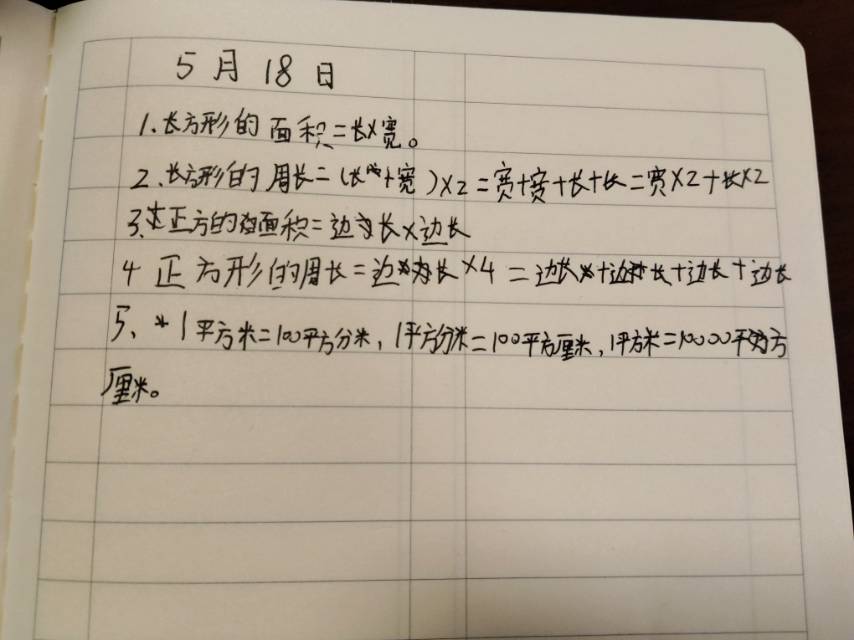 5月18日
1.长方形的面积=长×宽。
2.长方形的周长=(长+宽)×2=宽+宽+长+长=宽×2+长×2
3.正方的面积=边长×边长
4 正方形的周长=边长×4=边长+边长+边长+边长
5、*1平方米=100平方分米,1平方分米=100平方厘米,1平方米=10000平方
厘米。